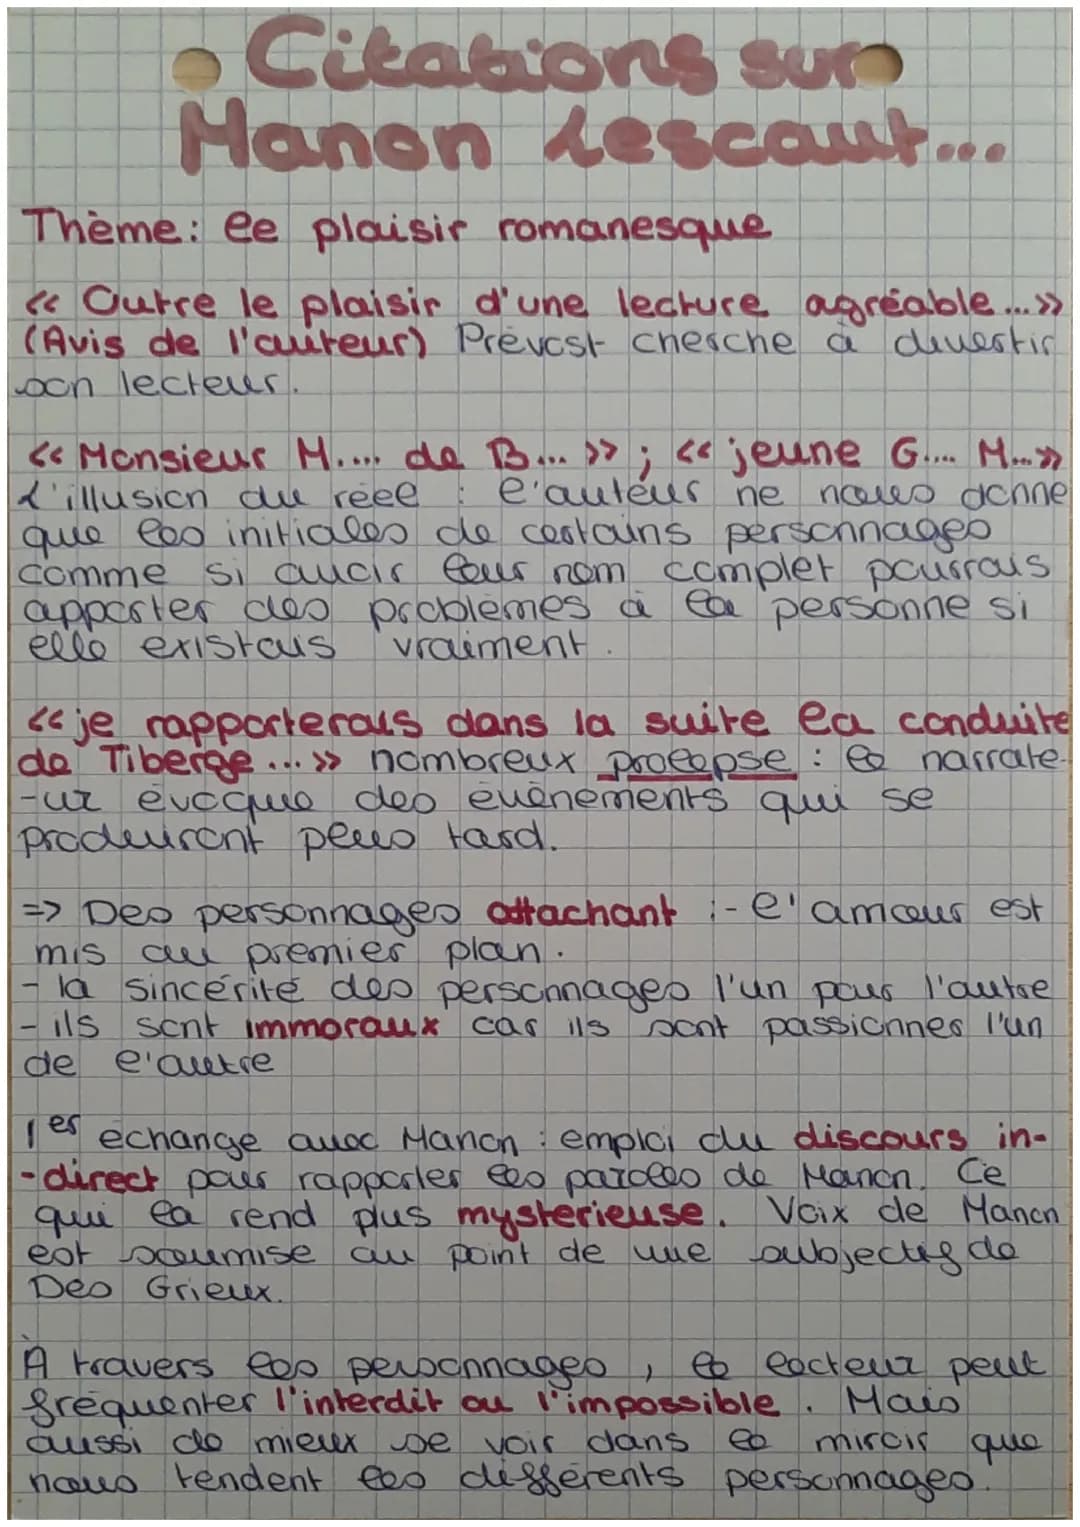 Citations sur
Manon Lescaut...
Thème: le plaisir romanesque
<< Outre le plaisir d'une lecture agréable...>>
(Avis de l'auteur) Prévost cherche à divertir
son lecteur.
<< Monsieur M.... de B... >> ; << jeune G.... M...>>
L'illusion du réel : l'auteur ne nous donne
que les initiales de certains personnages
comme si avoir leur nom complet pourrais
apporter des problèmes à la personne si
elle existais vraiment.
<< je rapporterais dans la suite la conduite
de Tiberge ... >> nombreux prolepse : le narrate-
-ur évoque des événements qui se
produiront plus tard.
=> Des personnages attachant :- l'amour est
mis au premier plan.
- la sincérité des personnages l'un pour l'autre
- ils sont immoraux car ils sont passionnés l'un
de l'autre
1er échange avec Manon : emploi du discours in-
-direct pour rapporter les paroles de Manon. Ce
qui la rend plus mysterieuse. Voix de Manon
est soumise au point de vue subjectif de
Des Grieux.
À travers les personnages, le lecteur peut
fréquenter l'interdit ou l'impossible. Mais
aussi de mieux se voir dans le miroir que
nous tendent les différents personnages.